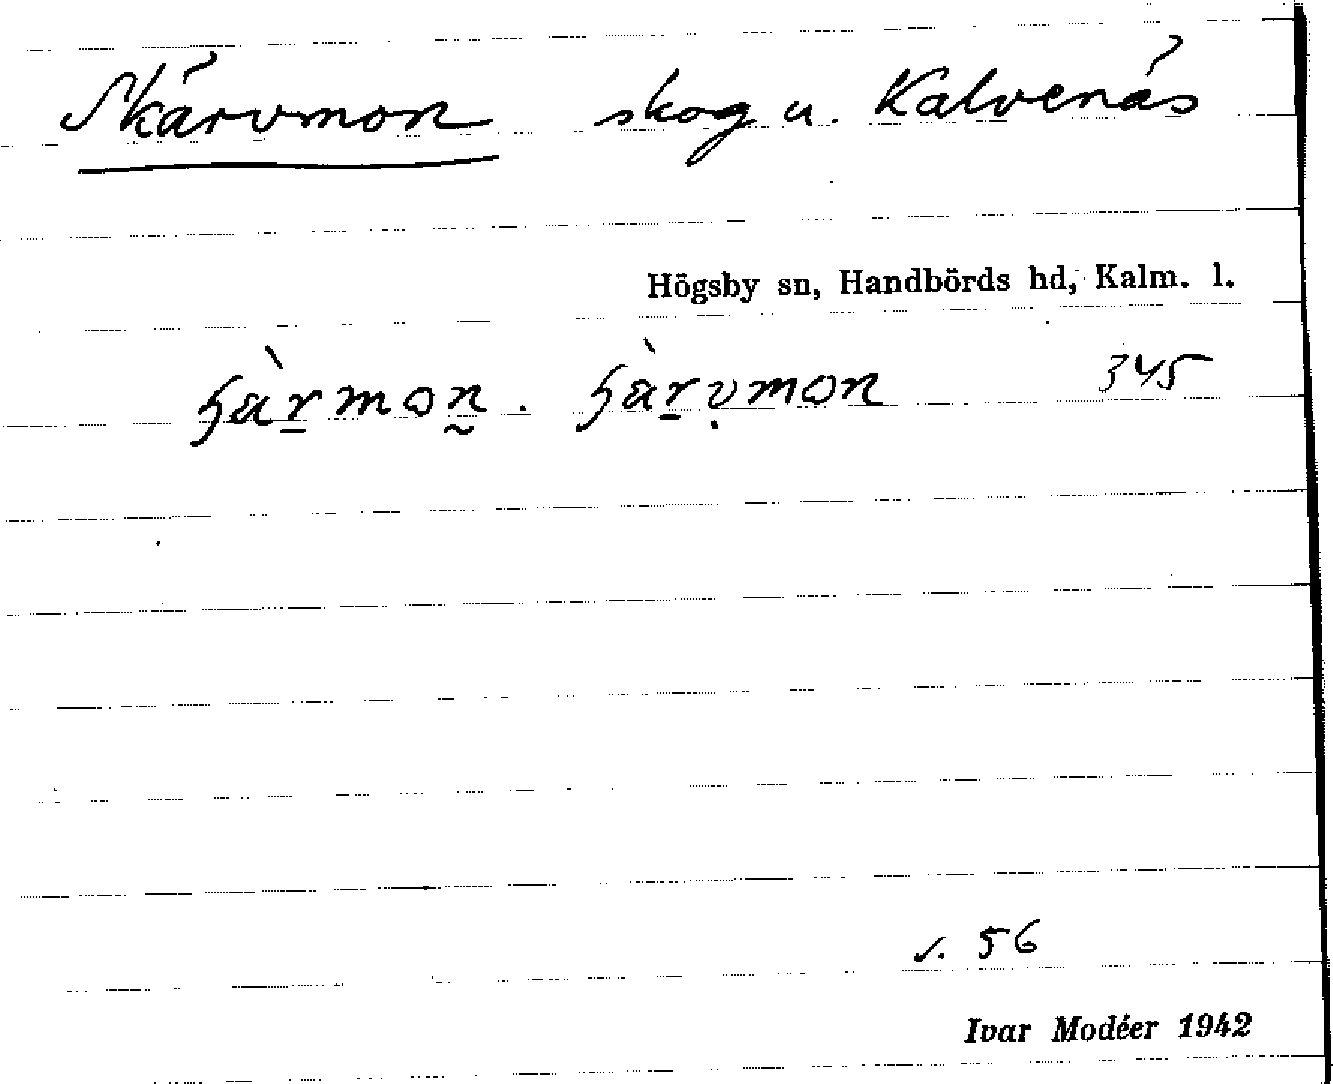 Skärvmon skog u. Kalvenäs
Högsby sn, Handbörds hd, Kalm. l.
345
s. 56
Ivar Modéer 1942